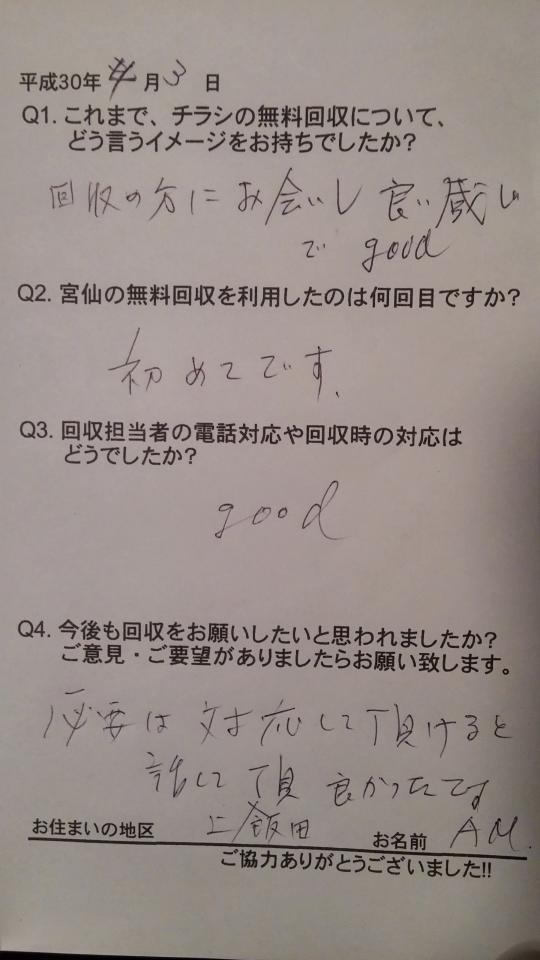 平成30年4月3日
Q1. これまで、チラシの無料回収について、
どう言うイメージをお持ちでしたか?
回収の方にお会いし 良い蔵じ
で good
Q2. 宮仙の無料回収を利用したのは何回目ですか?
初めてです.
Q3. 回収担当者の電話対応や回収時の対応は
どうでしたか?
good
Q4. 今後も回収をお願いしたいと思われましたか?
ご意見・ご要望がありましたらお願い致します。
必要は 対応して頂けると
話して 頂 良かったです
お住まいの地区 上飯田 お名前 A M.
ご協力ありがとうございました!!